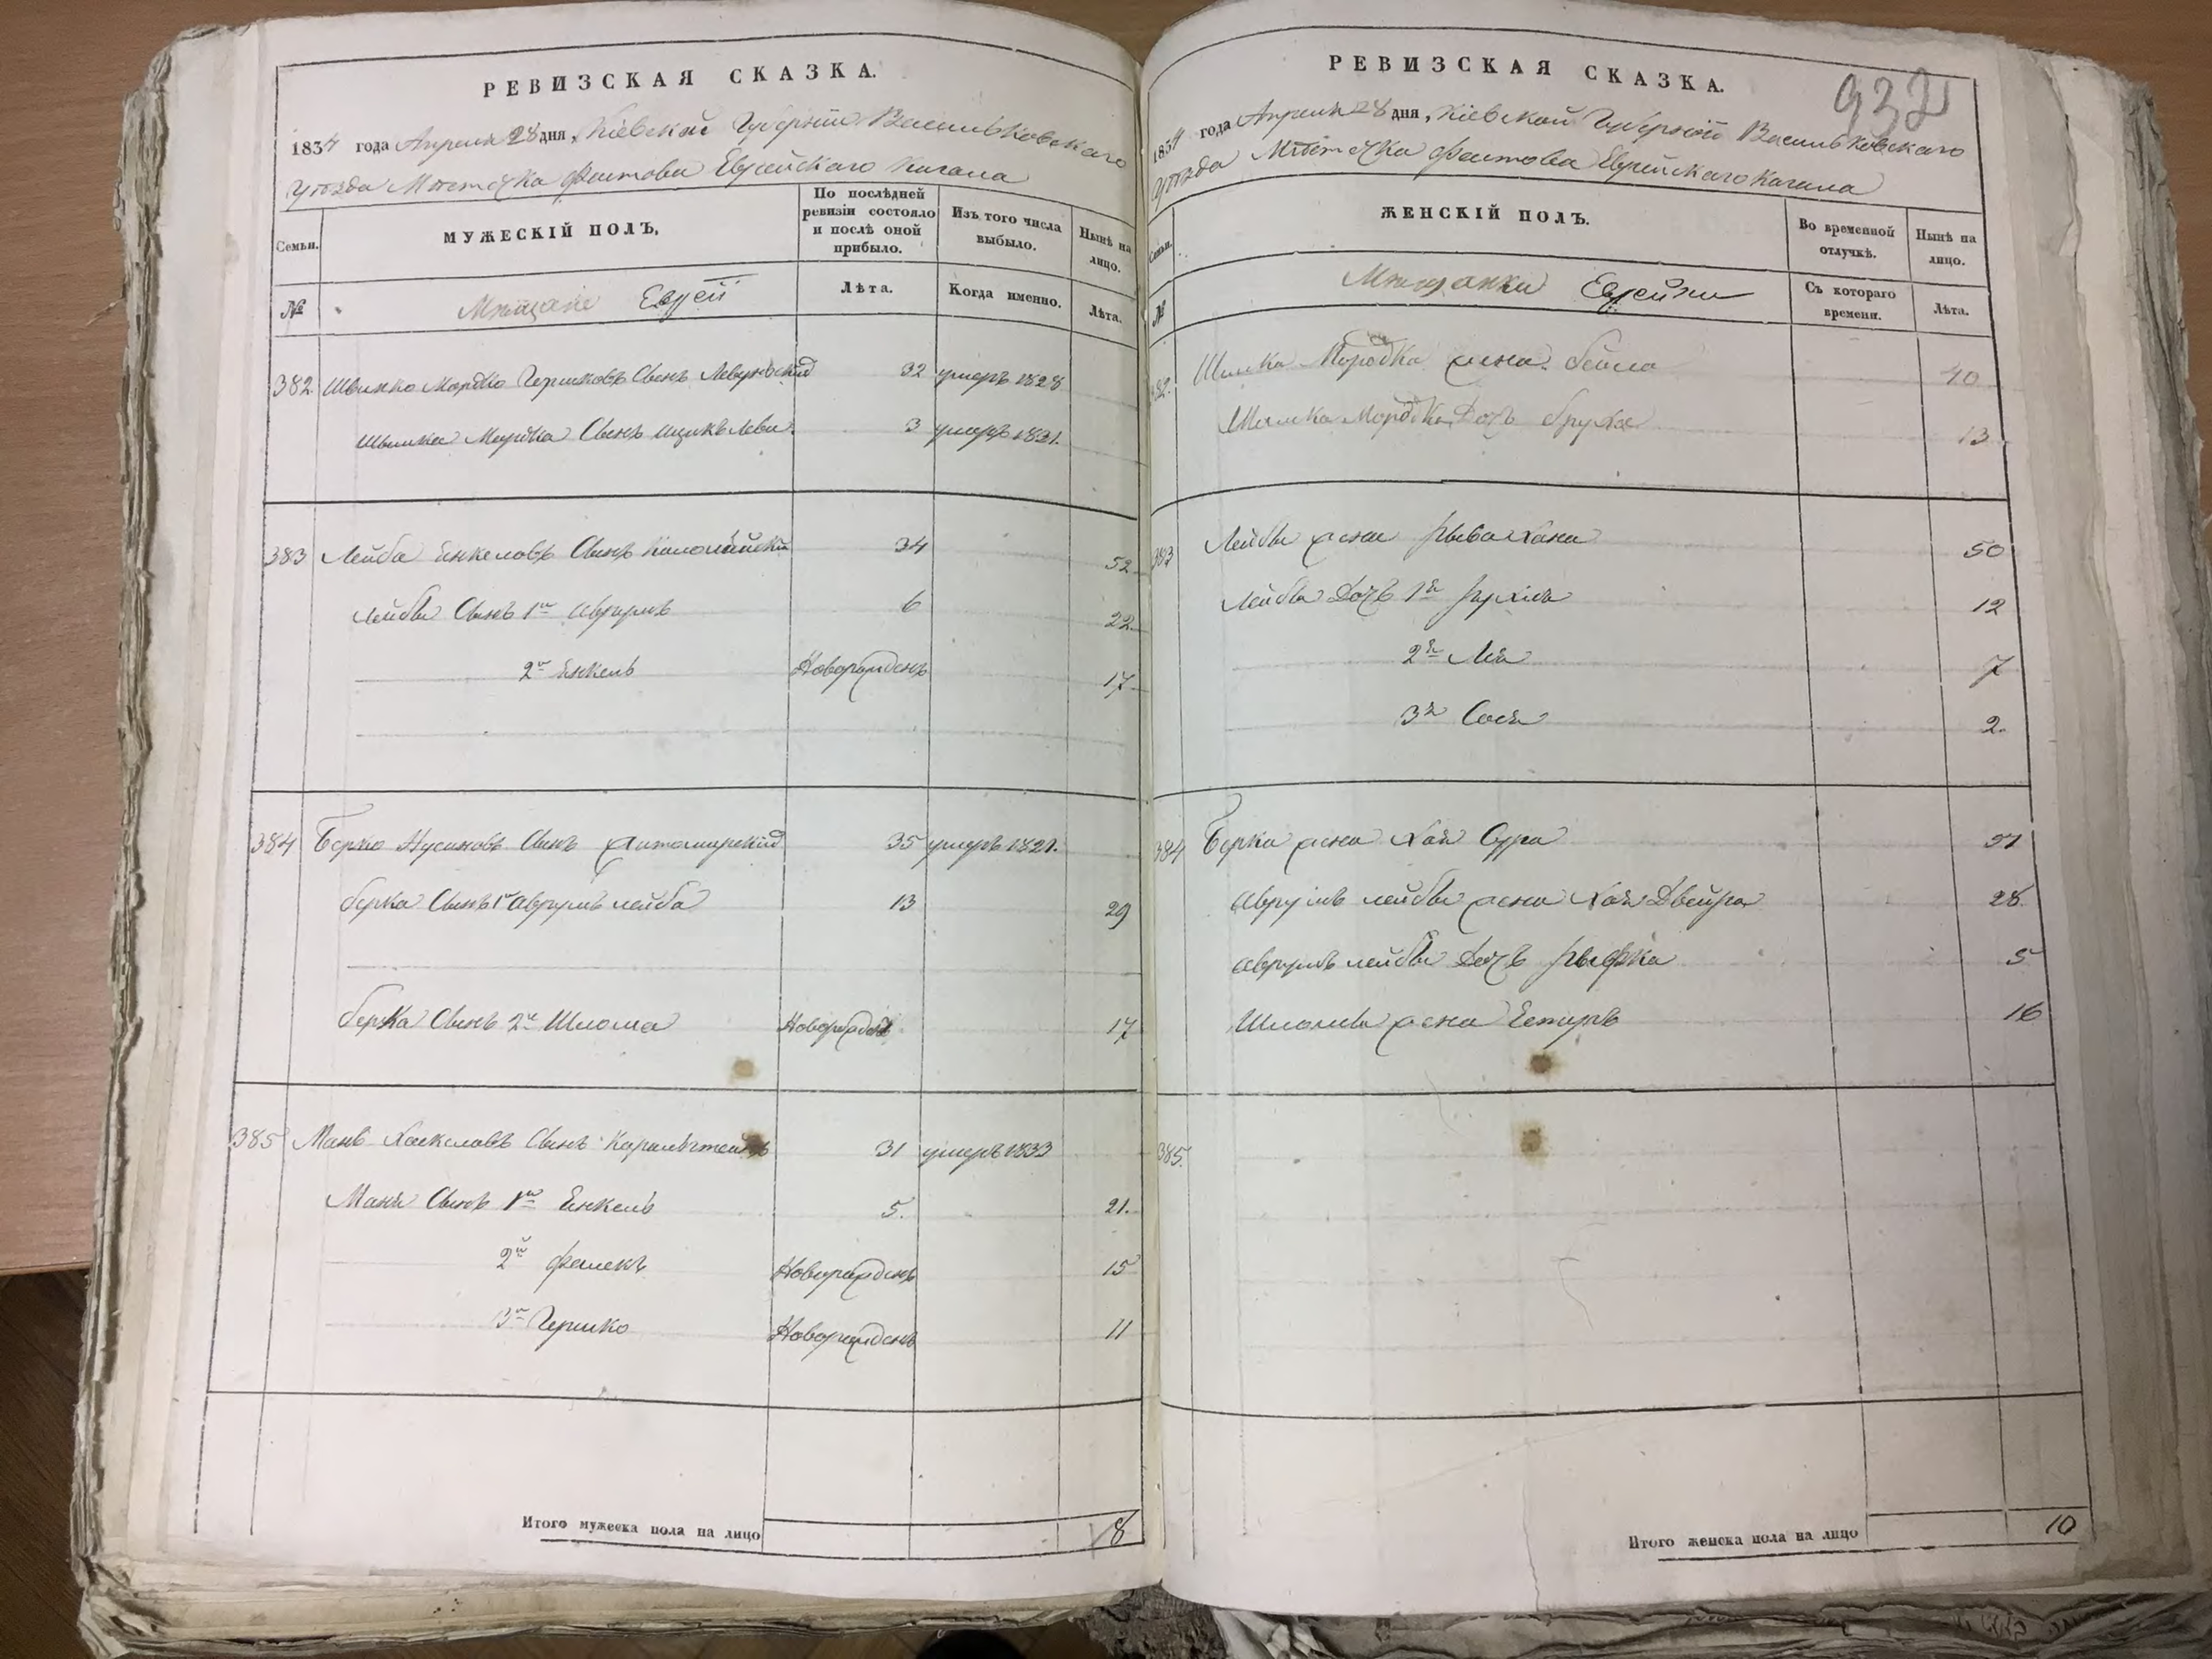 РЕВИЗСКАЯ СКАЗКА.
1834 года Апреля 28 дня, Кіевской Губерніи Васильковскаго
уѣзда Мѣстечка Фастова Еврейскаго Кагала
Семьи.
МУЖЕСКІЙ ПОЛЪ,
По послѣдней ревизіи состояло и послѣ оной прибыло.
Изъ того числа выбыло.
Нынѣ на лицо.
№
Мѣщане Евреи
Лѣта.
Когда именно.
Лѣта.
382 Шимко Мордко Гершковъ Сынъ 32 умеръ 1828
Шимка Мордка Сынъ Ицикъ Лейб 3 умеръ 1831.
383 Лейба Янкелевъ Сынъ 34 52
Лейбы Сынъ 1й Аврумъ 6 22
2й Янкель Новорожденъ 17
384 Берко Нусиновъ Сынъ Житомирскій 35 умеръ 1821.
Берка Сынъ 1й Аврумъ лейба 13 29
Берка Сынъ 2й Шлома Новорожден 17
385 Мань Хаскелевъ Сынъ 31 умеръ 1833
Маня Сынъ 1й Янкель 5. 21.
2й Фалекъ Новорожденъ 15
3й Гершко Новорожденъ 11
Итого мужеска пола на лицо 8
РЕВИЗСКАЯ СКАЗКА.
1834 года Апреля 28 дня, Кіевской Губерніи Васильковскаго
уѣзда Мѣстечка Фастова Еврейскаго Кагала
Семьи.
ЖЕНСКІЙ ПОЛЪ.
Во временной отлучкѣ.
Нынѣ на лицо.
№
Мѣщанки Еврейки
Съ котораго времени.
Лѣта.
382. Шимка Мордка жена Бейла 40
Шимка Мордка Дочь Бруха 13
383 Лейбы жена Рыва Хана 50
Лейбы Дочь 1я Рухля 12
2я Лея 7
3я Сося 2.
384 Берка жена Хая Сура 37
Аврумъ лейбы жена Хая Двейра 28
Аврумъ лейбы Дочь Рыфка 5
Шломы жена Естеръ 16
385.
Итого женска пола на лицо 10